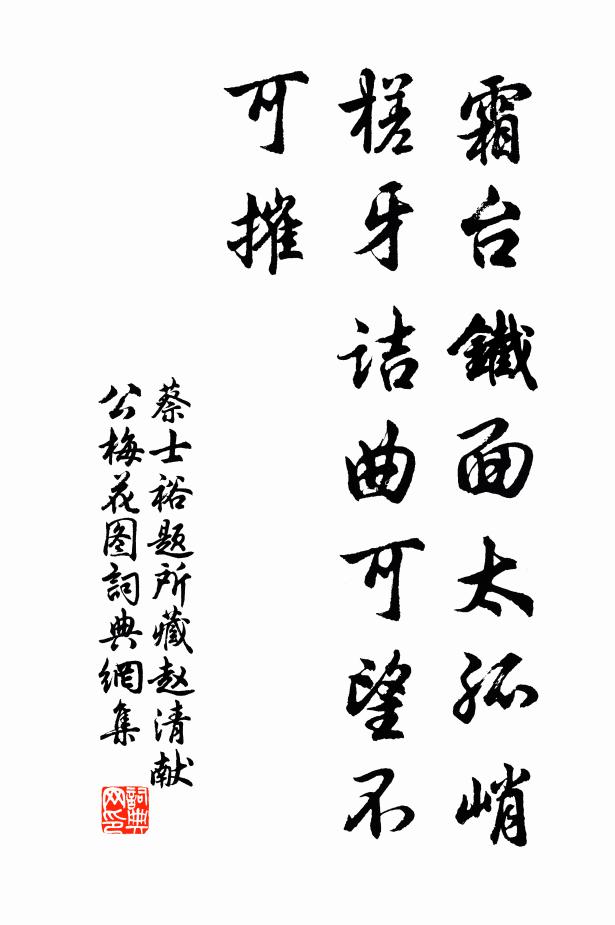 霜台鐵面太孤峭
槎牙詰曲可望不
可摧
蔡士裕題所藏赵清献
公梅花图詞典網集
詞典
网印